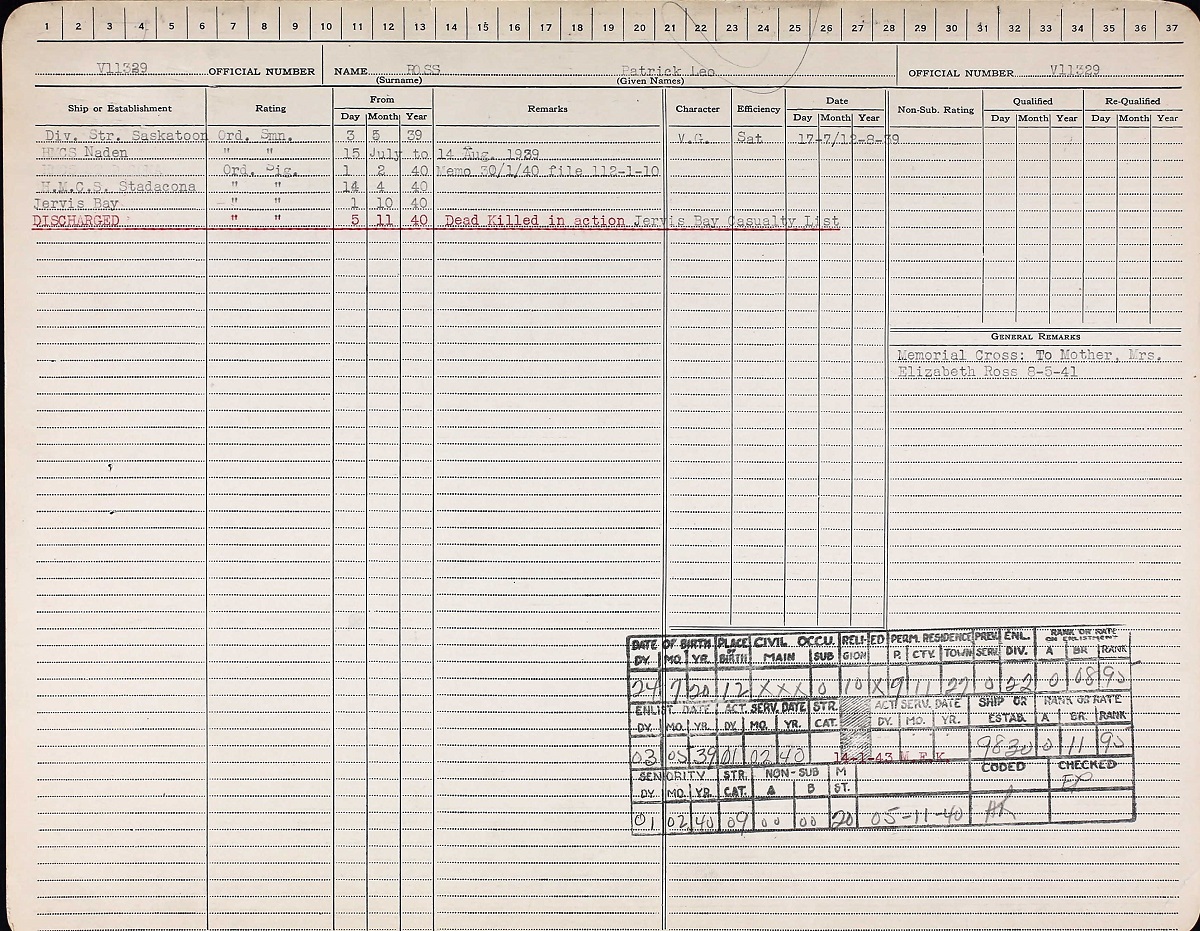 1 2 3 4 5 6 7 8 9 10 11 12 13 14 15 16 17 18 19 20 21 22 23 24 25 26 27 28 29 30 31 32 33 34 35 36 37
V11329 OFFICIAL NUMBER NAME ROSS Patrick Leo OFFICIAL NUMBER V11329
(Surname) (Given Names)
Ship or Establishment Rating From Remarks Character Efficiency Date Non-Sub. Rating Qualified Re-Qualified
Day Month Year Day Month Year Day Month Year Day Month Year
Div. Str. Saskatoon Ord. Smn. 3 5 39 V.G. Sat 17-7/12-8-39
HMCS Naden " " 15 July to 14 Aug. 1939
Ord. Sig. 1 2 40 Memo 30/1/40 file 112-1-10
H.M.C.S. Stadacona " " 14 4 40
Jervis Bay " " 1 10 40
DISCHARGED " " 5 11 40 Dead Killed in action Jervis Bay Casualty List
GENERAL REMARKS
Memorial Cross: To Mother, Mrs.
Elizabeth Ross 8-5-41
DATE OF BIRTH PLACE OF BIRTH CIVIL OCCU. RELIGION ED PERM. RESIDENCE PREV. SERV. ENL. DIV. RANK OR RATE ON ENLISTMENT
DY. MO. YR. MAIN SUB P. CTY. TOWN A BR RANK
24 7 20 12 XXX 0 10 X 9 11 27 0 22 0 08 95
ENLIST. DATE ACT. SERV. DATE STR. CAT. ACT. SERV. DATE SHIP OR ESTAB. RANK OR RATE
DY. MO. YR. DY. MO. YR. DY. MO. YR. A BR. RANK
03 05 39 01 02 40 14-1-43 M.F.K. 9830 0 11 95
SENIORITY STR. CAT. NON-SUB M ST. CODED CHECKED
DY. MO. YR. A B
01 02 40 09 00 00 20 05-11-40